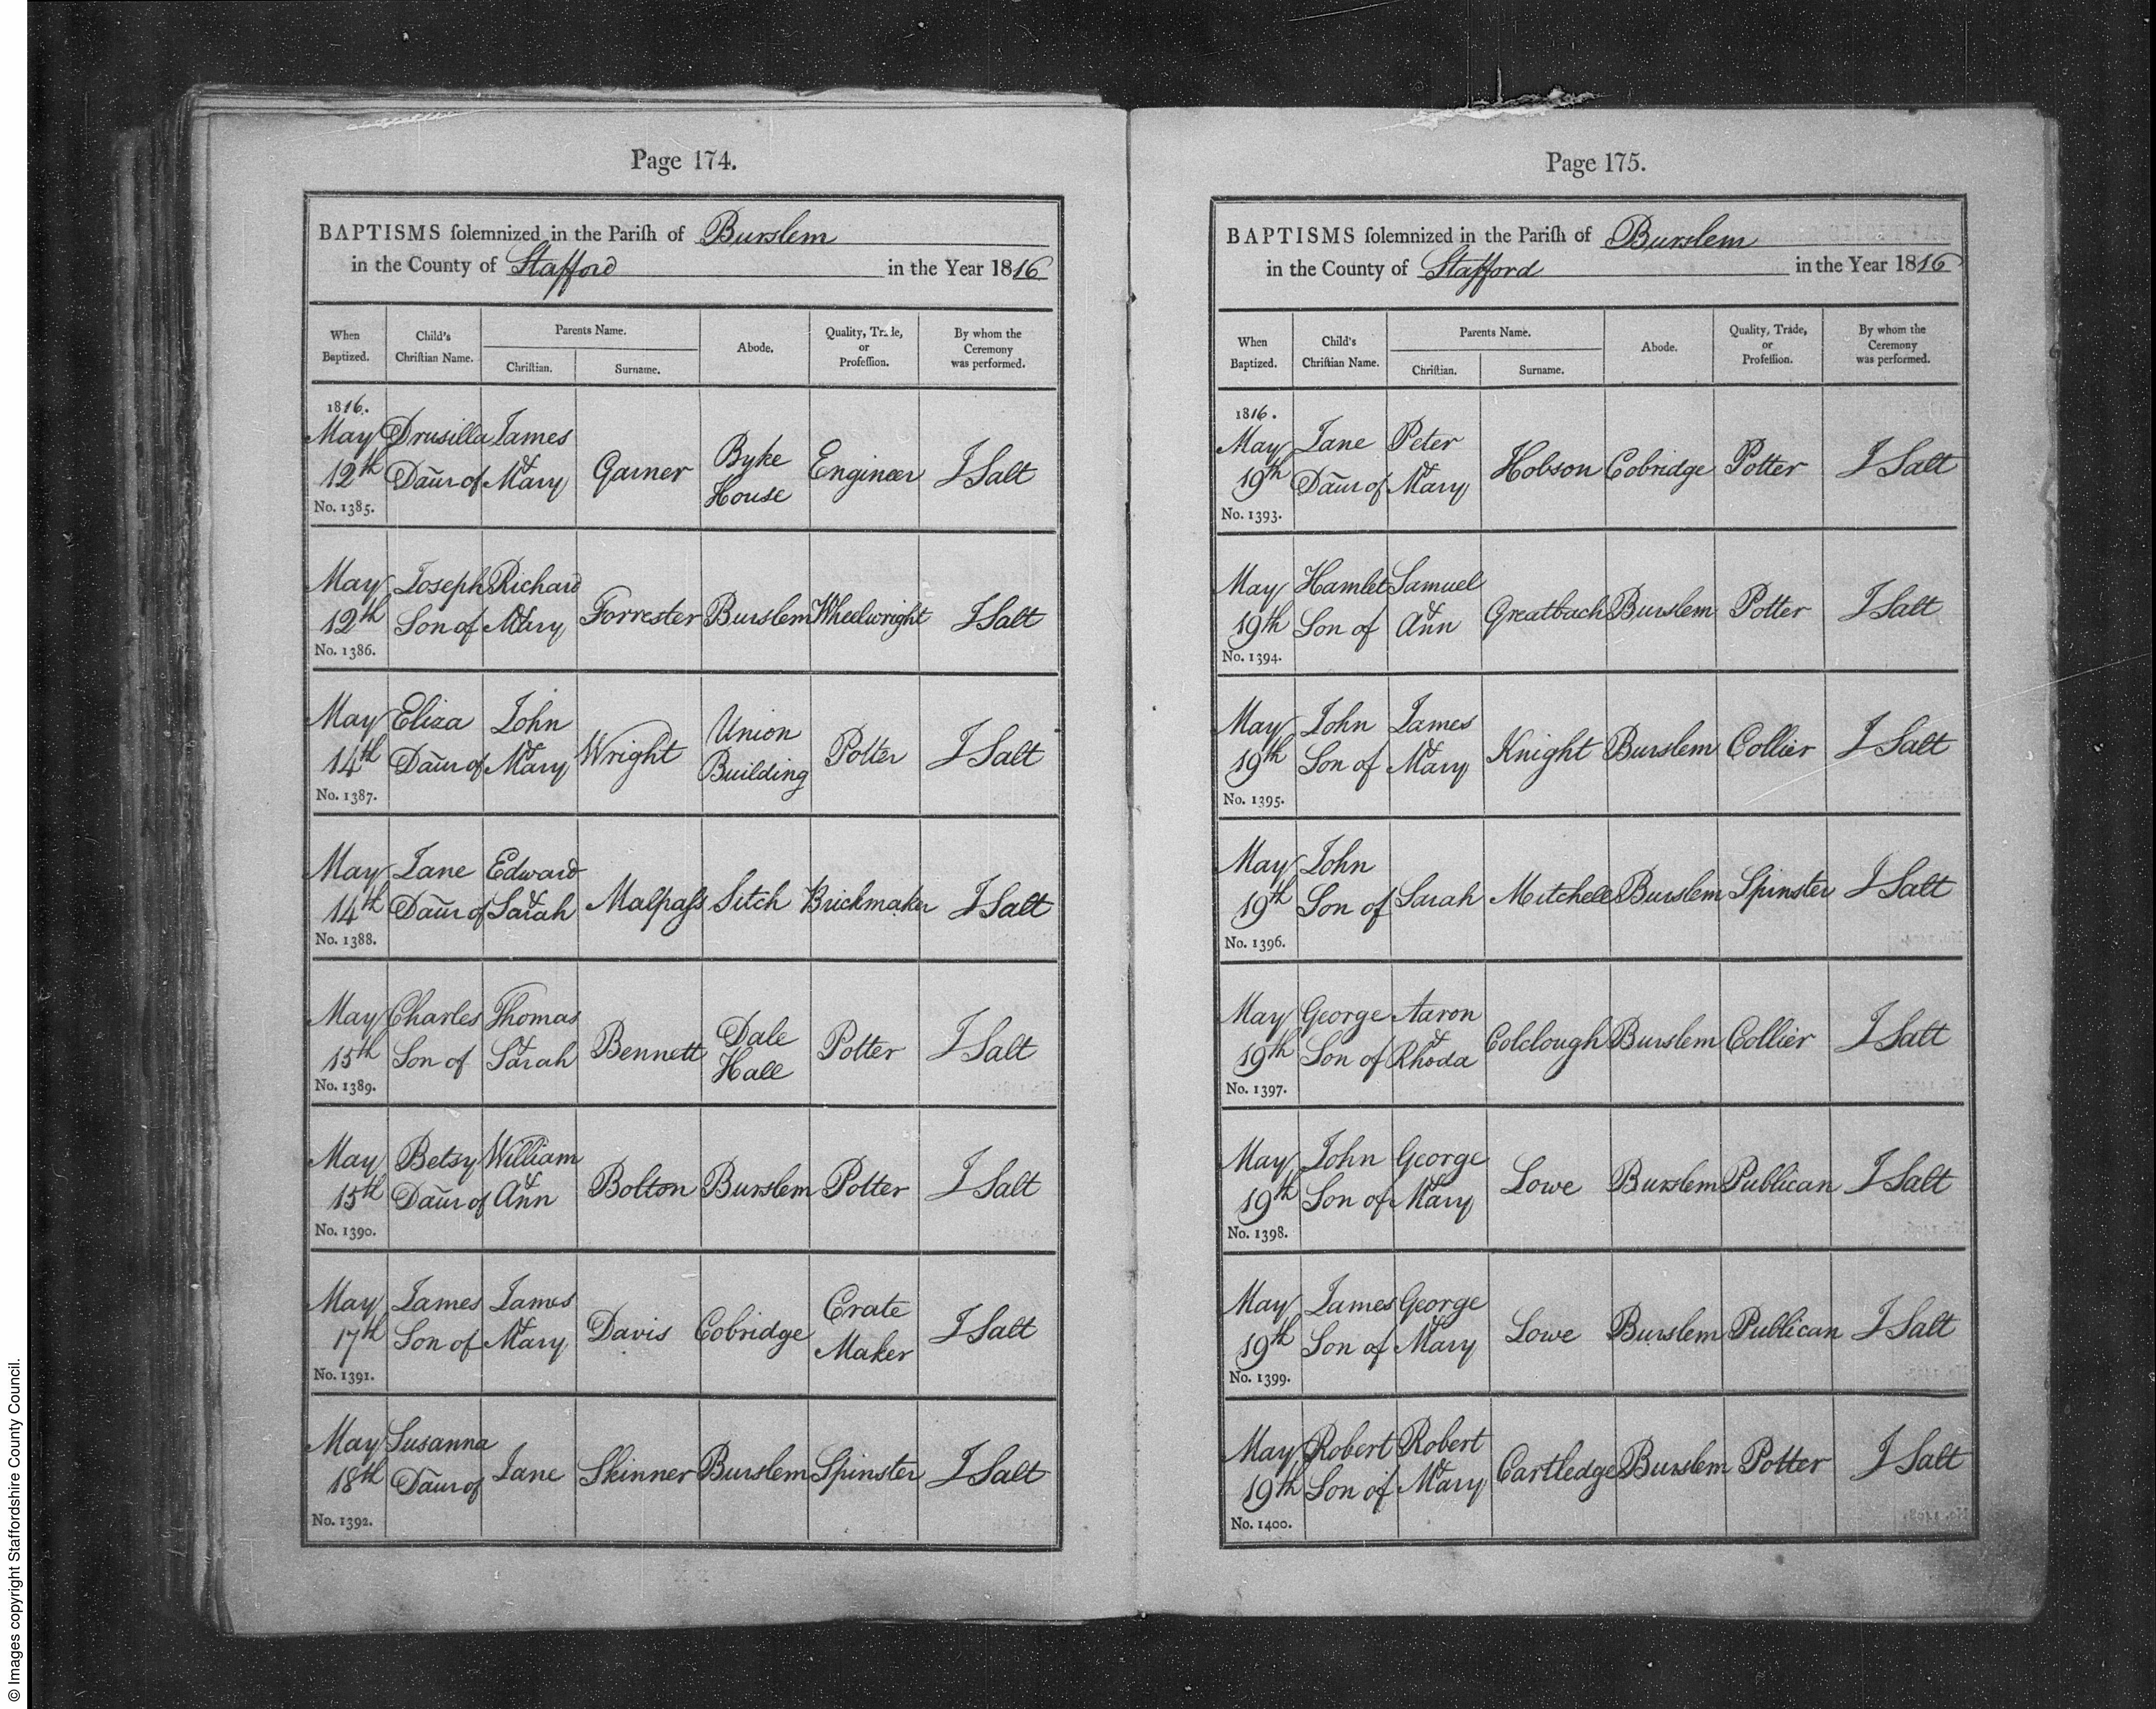 Page 174.
BAPTISMS ſolemnized in the Pariſh of Burslem
in the County of Stafford in the Year 1816
When Baptized.
Child's Chriſtian Name.
Parents Name.
Chriſtian.
Surname.
Abode.
Quality, Trade, or Profeſſion.
By whom the Ceremony was performed.
1816.
May 12th
No. 1385.
Drusilla Daur of
James & Mary
Garner
Byke House
Engineer
J Salt
May 12th
No. 1386.
Joseph Son of
Richard & Mary
Forrester
Burslem
Wheelwright
J Salt
May 14th
No. 1387.
Eliza Daur of
John & Mary
Wright
Union Building
Potter
J Salt
May 14th
No. 1388.
Jane Daur of
Edward & Sarah
Malpaſs
Sitch
Brickmaker
J Salt
May 15th
No. 1389.
Charles Son of
Thomas & Sarah
Bennett
Dale Hall
Potter
J Salt
May 15th
No. 1390.
Betsy Daur of
William & Ann
Bolton
Burslem
Potter
J Salt
May 17th
No. 1391.
James Son of
James & Mary
Davis
Cobridge
Crate Maker
J Salt
May 18th
No. 1392.
Susanna Daur of
Jane
Skinner
Burslem
Spinster
J Salt
Page 175.
BAPTISMS ſolemnized in the Pariſh of Burslem
in the County of Stafford in the Year 1816
When Baptized.
Child's Chriſtian Name.
Parents Name.
Chriſtian.
Surname.
Abode.
Quality, Trade, or Profeſſion.
By whom the Ceremony was performed.
1816.
May 19th
No. 1393.
Jane Daur of
Peter & Mary
Hobson
Cobridge
Potter
J Salt
May 19th
No. 1394.
Hamlet Son of
Samuel & Ann
Greatbach
Burslem
Potter
J Salt
May 19th
No. 1395.
John Son of
James & Mary
Knight
Burslem
Collier
J Salt
May 19th
No. 1396.
John Son of
Sarah
Mitchell
Burslem
Spinster
J Salt
May 19th
No. 1397.
George Son of
Aaron & Rhoda
Colclough
Burslem
Collier
J Salt
May 19th
No. 1398.
John Son of
George & Mary
Lowe
Burslem
Publican
J Salt
May 19th
No. 1399.
James Son of
George & Mary
Lowe
Burslem
Publican
J Salt
May 19th
No. 1400.
Robert Son of
Robert & Mary
Cartledge
Burslem
Potter
J Salt
© Images copyright Staffordshire County Council.